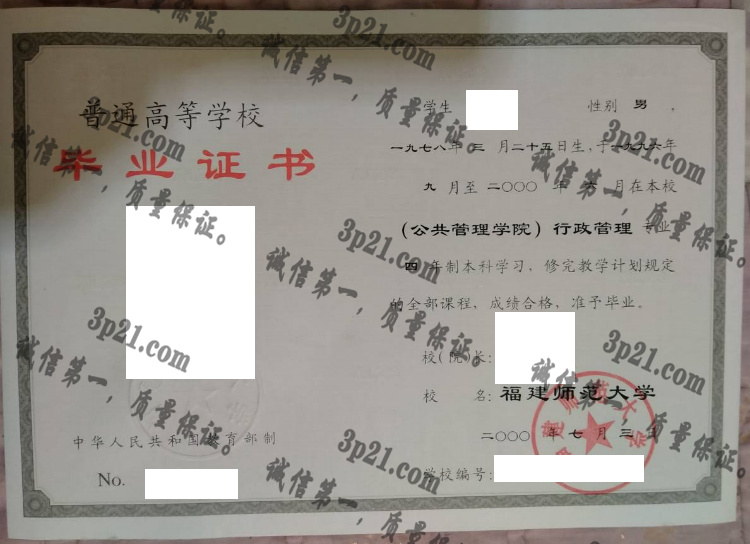 普通高等学校
毕业证书
中华人民共和国教育部制
No.
学生 性别 男 ,
一九七八年 三 月二十五日生,于一九九六年
九 月至 二〇〇〇 年 六 月在本校
(公共管理学院)行政管理 专业
四 年制本科学习,修完教学计划规定
的全部课程,成绩合格,准予毕业。
校(院)长:
校 名:福建师范大学
二〇〇〇 年 七 月 三 日
学校编号:
3p21.com
诚信第一,质量保证。
3p21.com
诚信第一,质量保证。
3p21.com
诚信第一,质量保证。
3p21.com
诚信第一,质量保证。
3p21.com
诚信第一,质量保证。
3p21.com
诚信第一,质量保证。
3p21.com
诚信第一,质量保证。
3p21.com
诚信第一,质量保证。